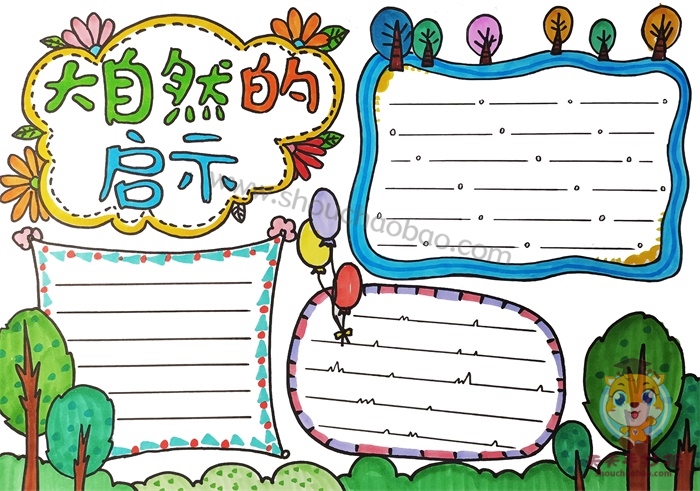 大自然的
启示
www.shouchaobao.com
shouchaobao.com